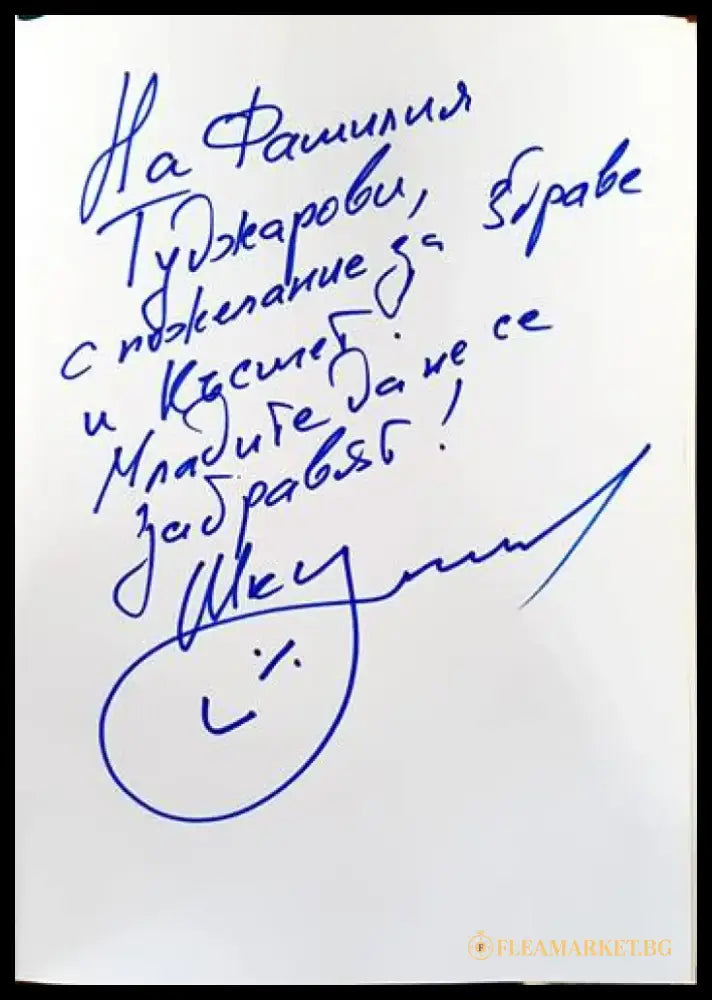 На Фамилия
Туджарови,
с пожелание за здраве
и Късмет.
Младите да не се
забравят!
FLEAMARKET.BG